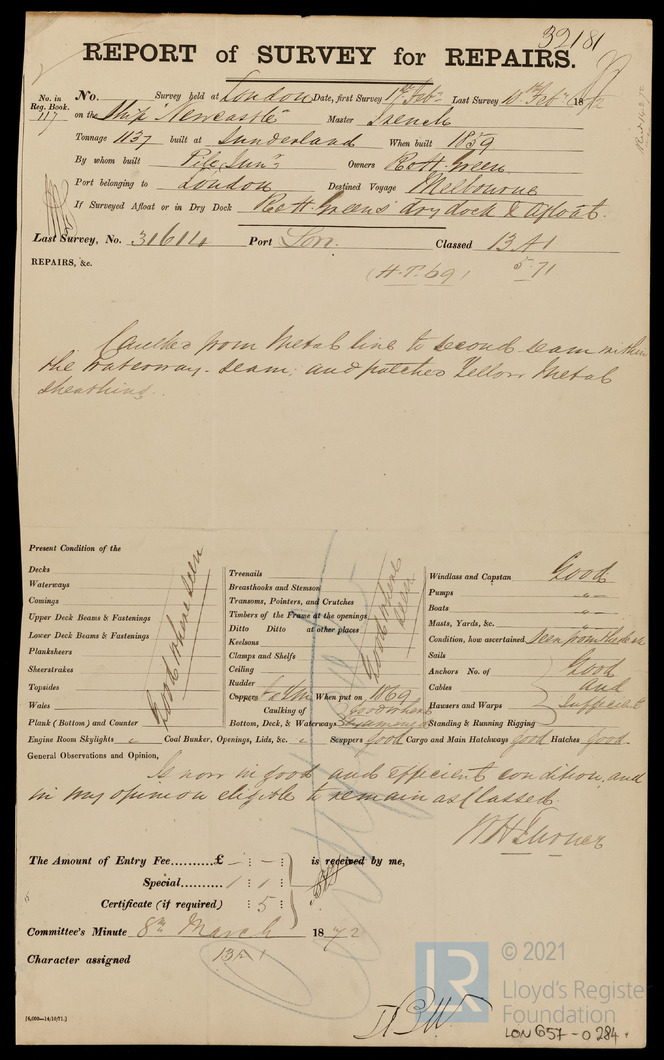 32181
REPORT of SURVEY for REPAIRS.
No. in Reg. Book. 117
No. Survey held at London Date, first Survey 1st Feby Last Survey 10th Feby 1872
on the Ship "Newcastle" Master French
Tonnage 1137 built at Sunderland When built 1859
By whom built Pile, Sunr Owners R & H. Green
Port belonging to London Destined Voyage Melbourne
If Surveyed Afloat or in Dry Dock R & H. Greens' dry dock & Afloat.
Last Survey, No. 31614 Port Lon. Classed 13 A1
REPAIRS, &c. (H.T. 69) 5.71
Caulked from Metal line to second seam within
the waterway-seam; and patched Yellow Metal
sheathing.
Present Condition of the
Decks
Waterways
Comings
Upper Deck Beams & Fastenings
Lower Deck Beams & Fastenings
Planksheers
Sheerstrakes
Topsides
Wales
Plank (Bottom) and Counter
Good where seen
Treenails
Breasthooks and Stemson
Transoms, Pointers, and Crutches
Timbers of the Frame at the openings
Ditto Ditto at other places
Keelsons
Clamps and Shelfs
Ceiling
Rudder
Good where seen
Copper When put on 1869
Caulking of Good where
Bottom, Deck, & Waterways
Windlass and Capstan Good
Pumps "
Boats "
Masts, Yards, &c. "
Condition, how ascertained Seen from the deck
Sails
Anchors No. of
Cables
Hawsers and Warps
Standing & Running Rigging
Good and Sufficient
Engine Room Skylights Coal Bunker, Openings, Lids, &c. Scuppers Good Cargo and Main Hatchways Good Hatches Good
General Observations and Opinion,
Is now in good and efficient condition, and
in my opinion eligible to remain as Classed.
W H Turner
The Amount of Entry Fee..........£ - : - : is received by me,
Special.......... 1 : 1 :
Certificate (if required) : 5 :
Committee's Minute 8th March 1872
Character assigned 13A1
[6,000—14/10/71.]
© 2021
LR
Lloyd's Register
Foundation
LON 657-0284